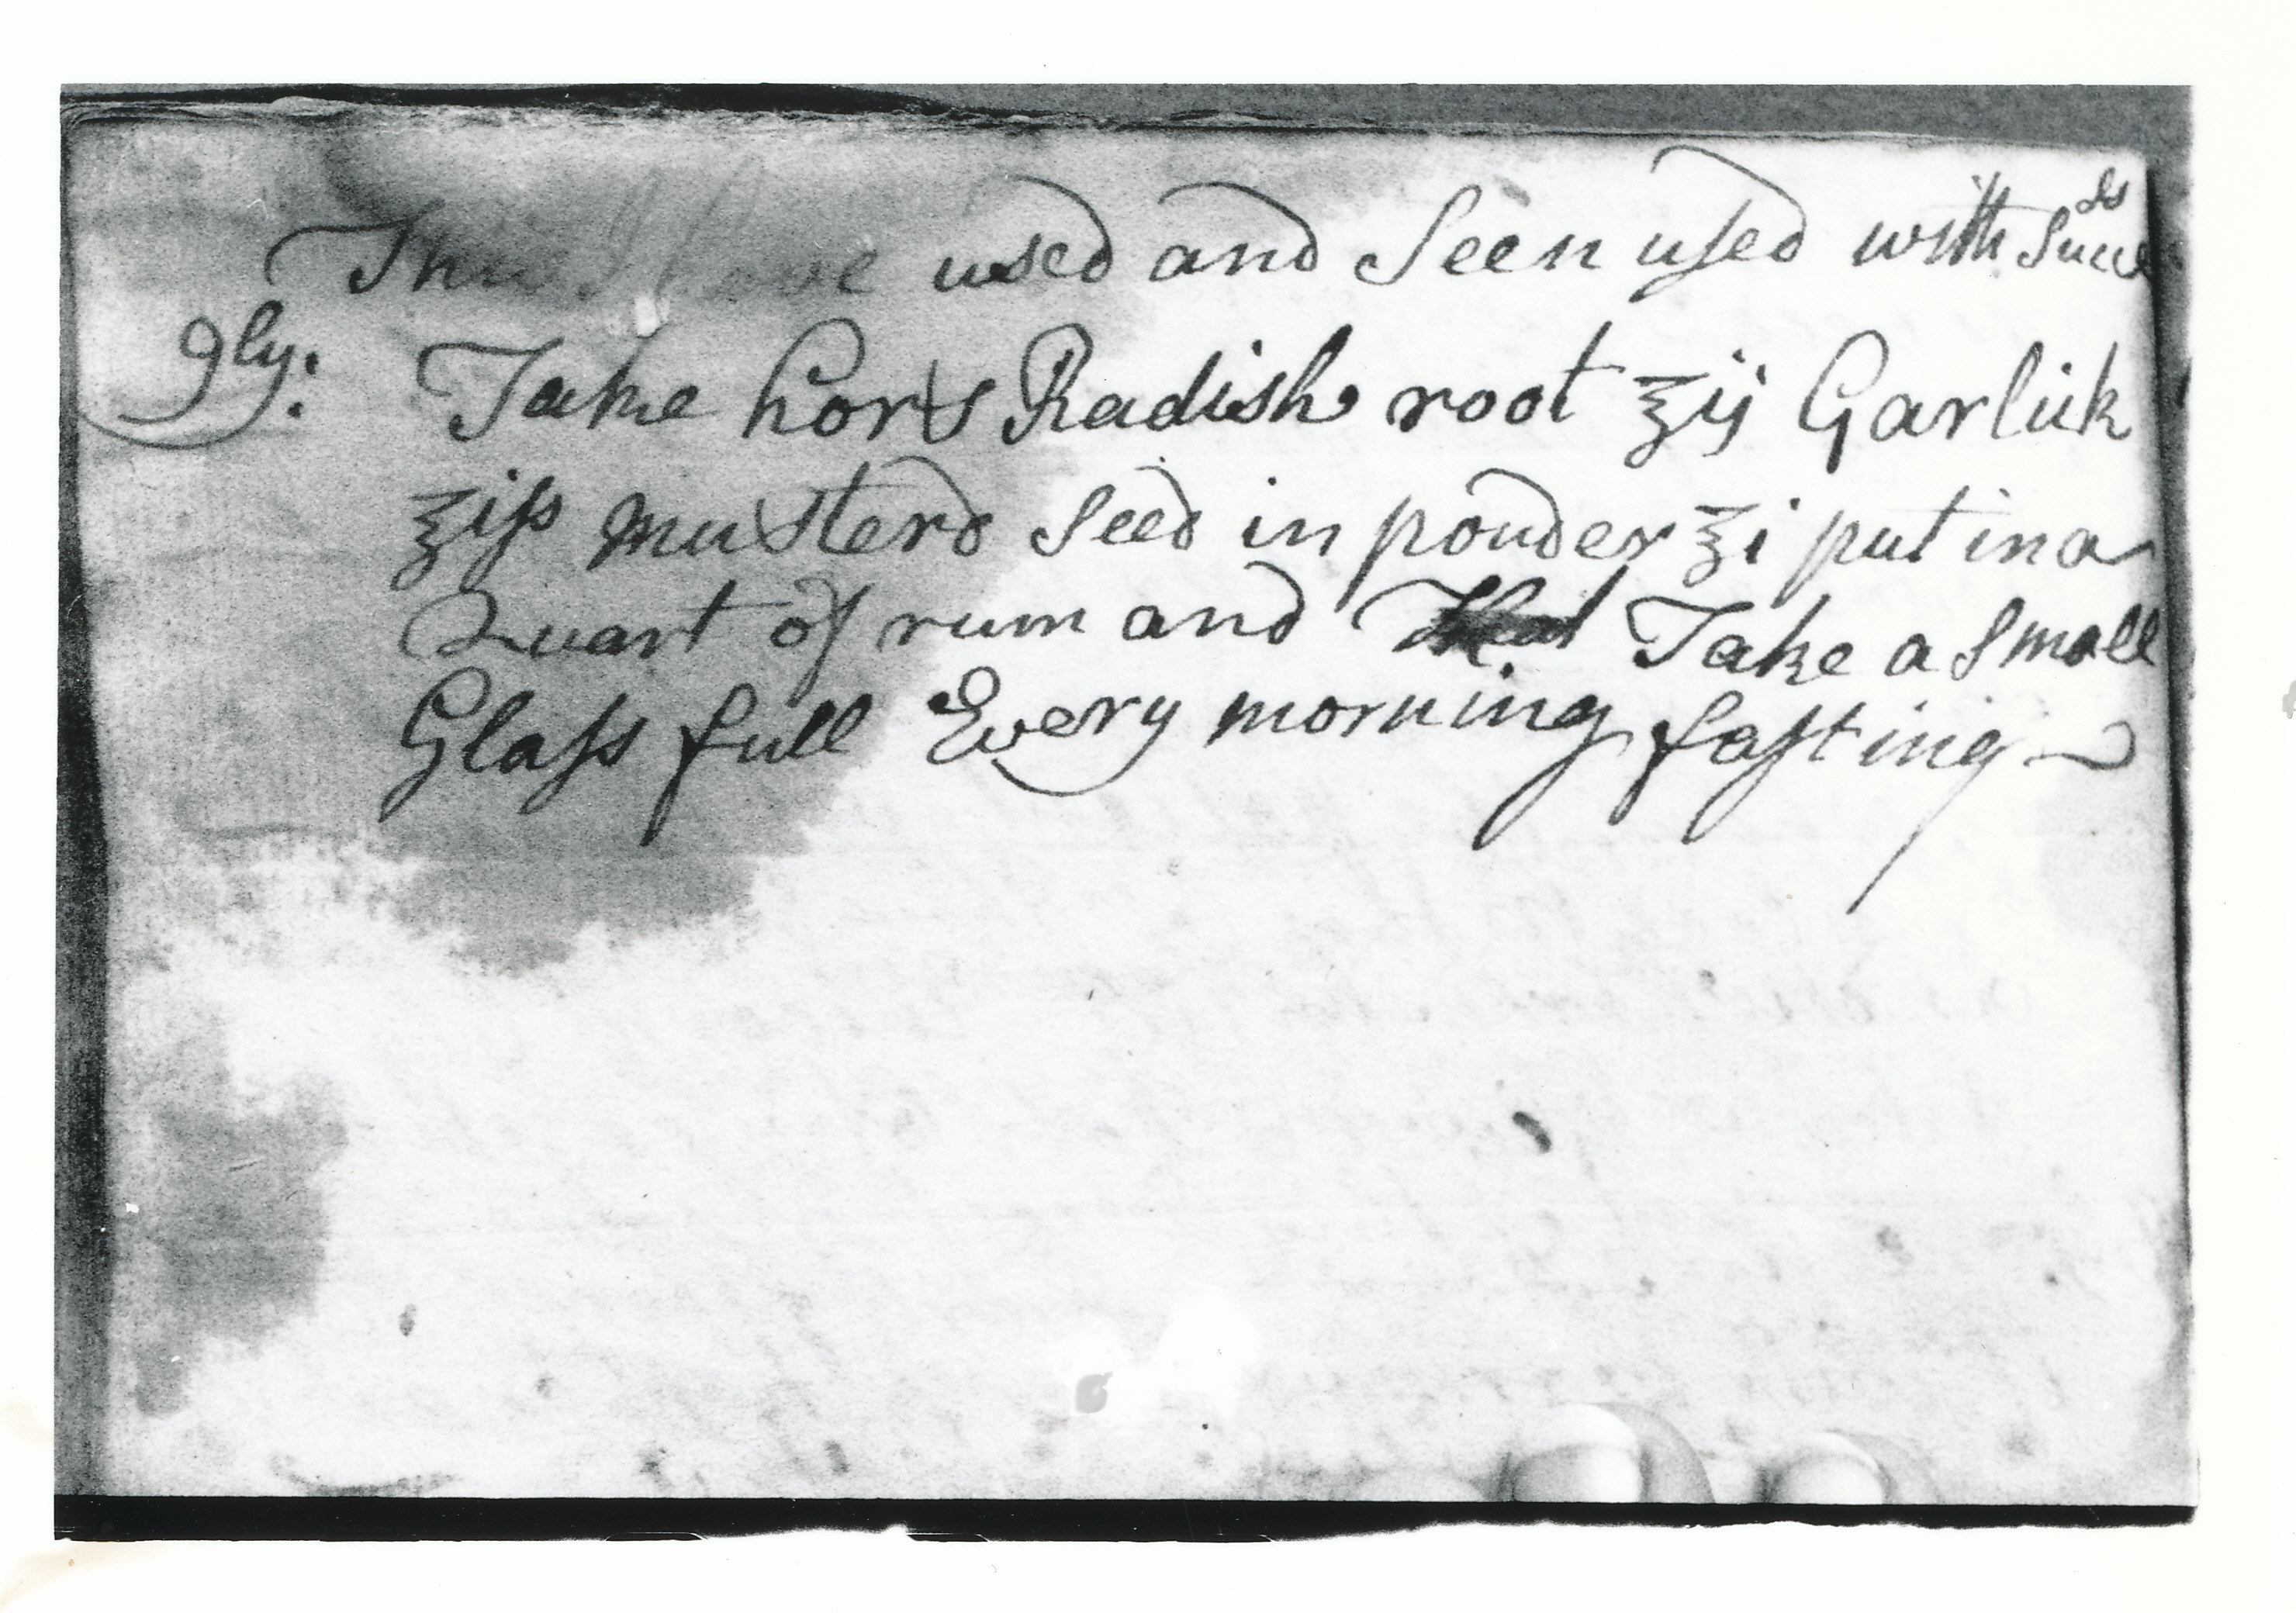 This I have used and Seen used with Success
9ly: Take hors Radish root ℥ij Garlick
℥iss musterd Seed in pouder ℥i put in a
Quart of rum and Take a Small
Glass full Every morning fasting